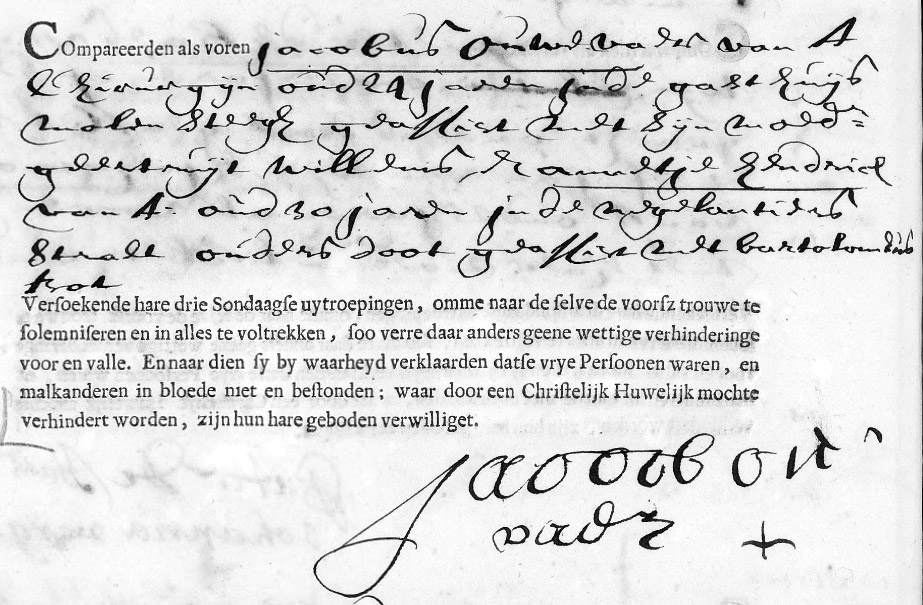 Compareerden als voren Jacobus Ouwevader van A
Chirurgijn oud 24 jaren in de gasthuijs
molen steegh geassist met sijn moedr
geertruijt willems, & annetje hendricx
van A. oud 30 jaren in de negelantiers
straet ouders doot geassist met bartolomeus
Verſoekende hare drie Sondaagſe uytroepingen, omme naar de ſelve de voorſz trouwe te
ſolemniſeren en in alles te voltrekken, ſoo verre daar anders geene wettige verhinderinge
voor en valle. En naar dien ſy by waarheyd verklaarden datſe vrye Perſoonen waren, en
malkanderen in bloede niet en beſtonden; waar door een Chriſtelijk Huwelijk mochte
verhindert worden, zijn hun hare geboden verwilliget.
Jacob ou
vadr +